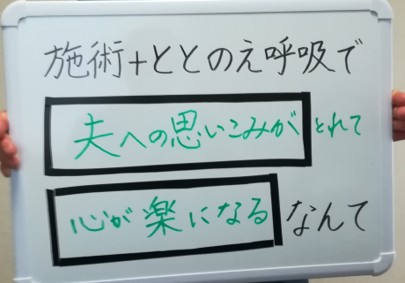 施術+ととのえ呼吸で
夫への思いこみがとれて
心が楽になるなんて